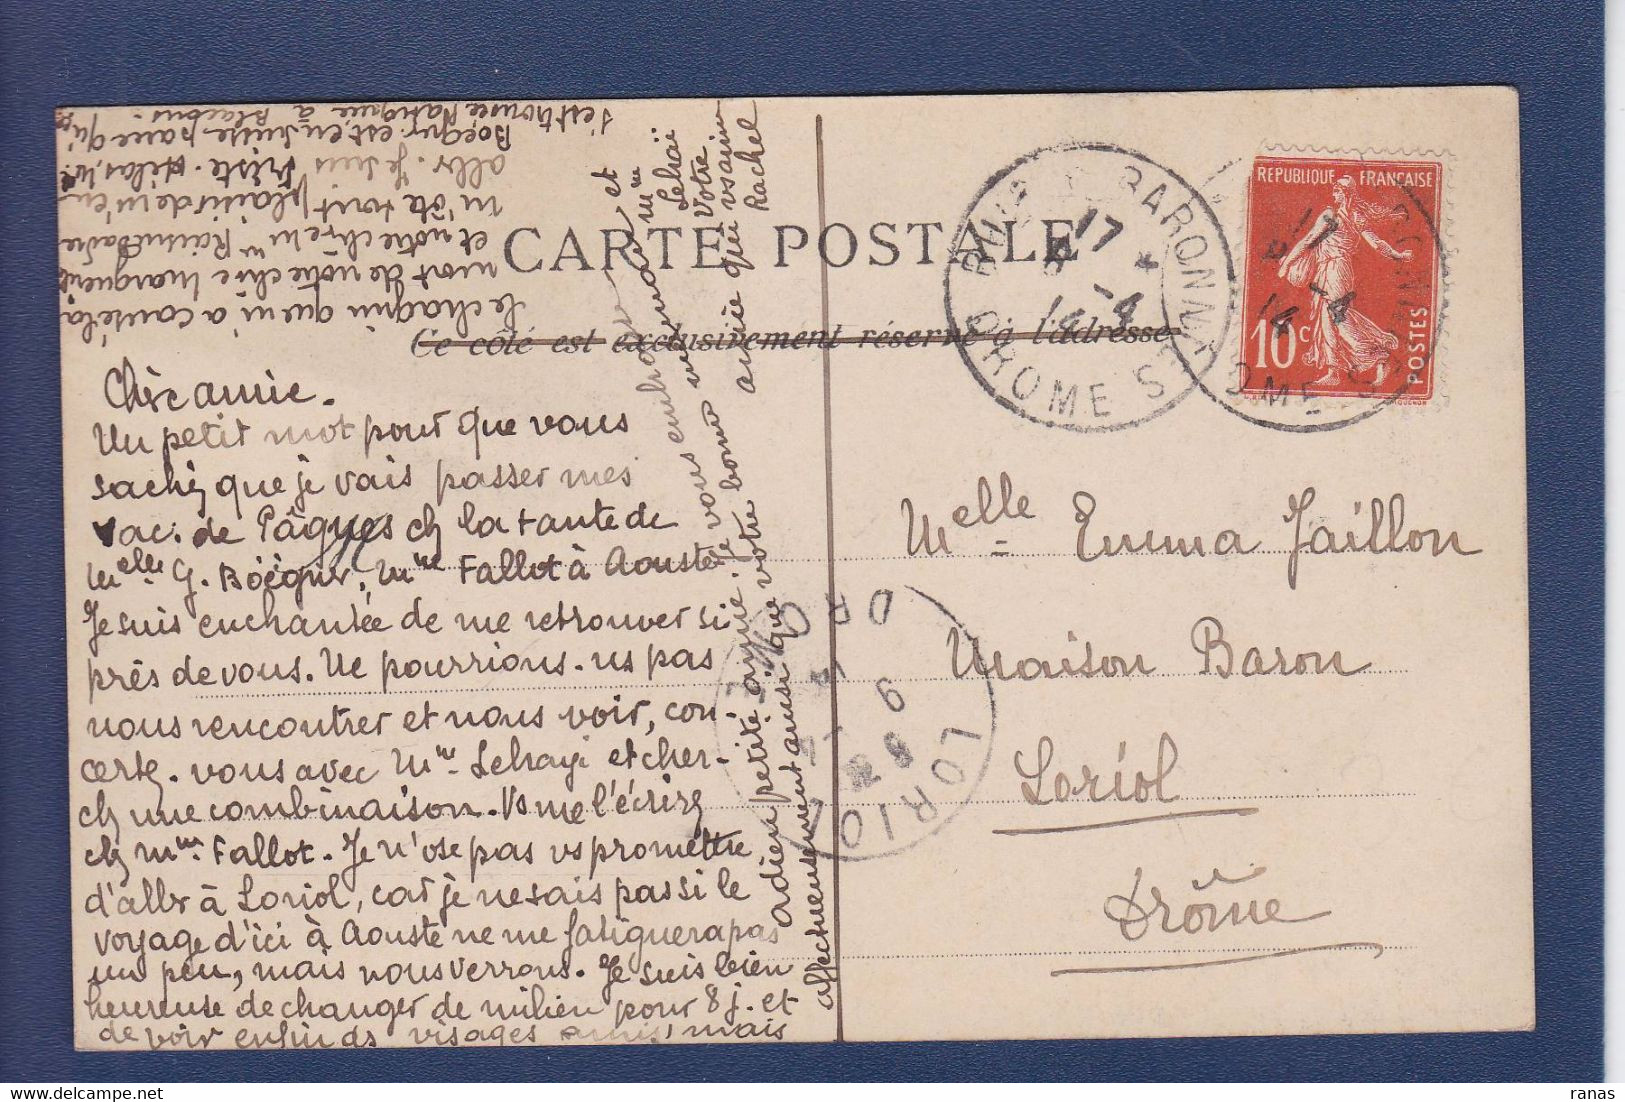 CARTE POSTALE
Ce côté est exclusivement réservé à l'adresse
RÉPUBLIQUE FRANÇAISE
10c
POSTES
BARONN
DROME
17
LORIOL
DROME
Chère amie.
Un petit mot pour que vous
sachiez que je vais passer mes
vac. de Pâques chez la tante de
Melle G. Böegner, Mme Fallot à Aouste.
Je suis enchantée de me retrouver si
près de vous. Ne pourrions-ns pas
nous rencontrer et nous voir, con-
certez-vous avec Mme Lehayi et cher-
chez une combinaison. Vs me l'écrirez
chez Mme Fallot. Je n'ose pas vs promettre
d'aller à Loriol, car je ne sais pas si le
voyage d'ici à Aouste ne me fatiguera pas
un peu, mais nous verrons. Je suis bien
heureuse de changer de milieu pour 8 j. et
de voir enfin ds visages amis, mais
le chagrin que m'a causé la
mort de notre chère Marguerite
et notre chère Mme
m'ôte tout plaisir de m'en
aller. Je suis triste. Hélas, Mr
Böegner est en Suisse parce qu'
s'est trouvée fatiguée à
Blacons.
adieu petite amie. Je vous embrasse et
affectueusement ainsi que votre bonne
Votre
amie qui vs aime
Rachel
Melle Emma Jaillon
Maison Baron
Loriol
Drôme
ranas